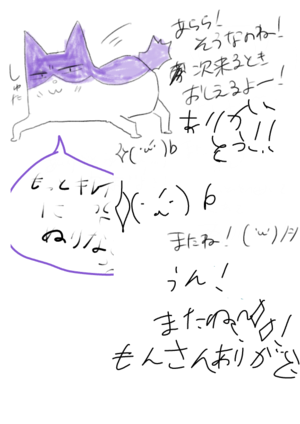 あらら!
そうなのね!
次来るとき
おしえるよー!
ありがとう!!
しゅた
✧(˙ω˙)b
もっとキレイ
に
ぬりな
✧(˙ω˙)b
またね!(˙ω˙)ノシ
うん!
またね〜!
もんさんありがと